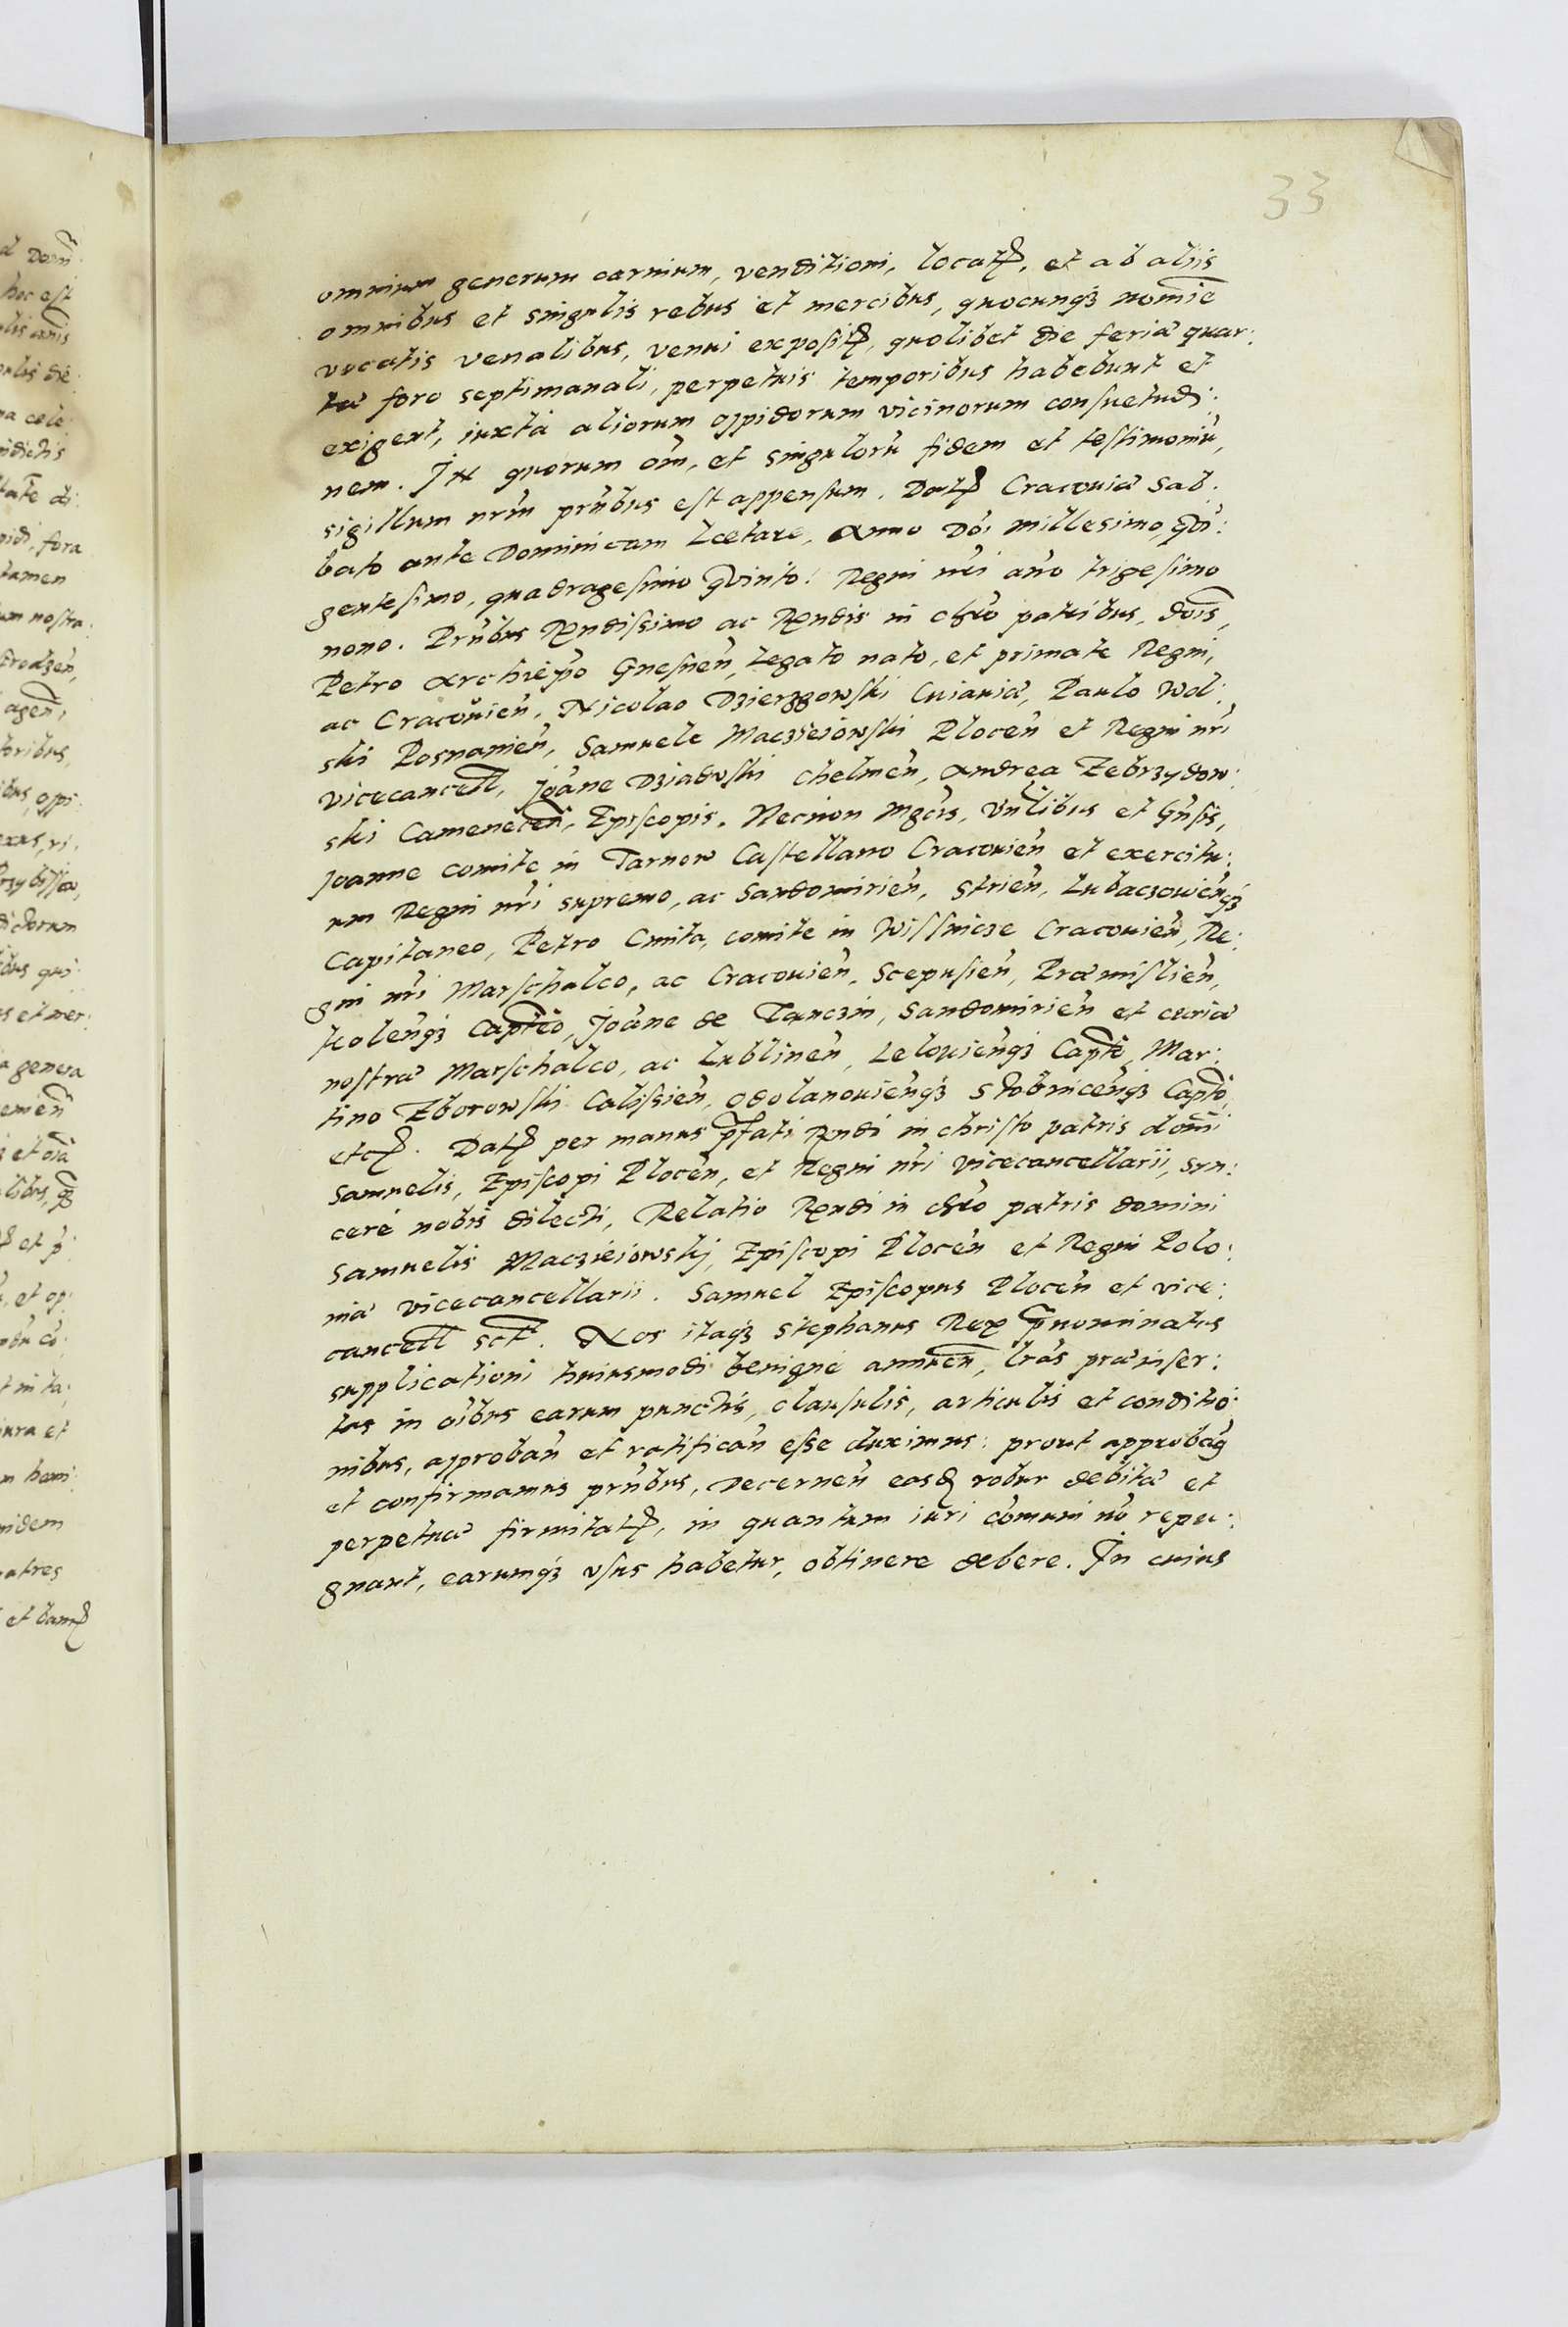 33
omnium generum carnium, venditioni, locatꝭ, et ab aliis
omnibus et singulis rebus et mercibus, quocunqȝ nomīe
vocatis venalibus, venui expositꝭ, quolibet die feria quar:
ta foro septimanali, perpetuis temporibus habebunt et
exigent, iuxtà aliorum oppidorum vicinorum consuetudi:
nem. In quorum oīm, et singulorū fidem et testimoniū,
sigillum nr̄m pñtibus est appensum. Datꝭ Cracouiæ Sab:
bato ante Dominicam Lætare, Anno Dōi millesimo, qūi:
gentesimo, quadragesimo quinto: Regni nr̄i año trigesimo
nono. Pñtibus Rēndissimo ac Rēndis in chr̄o patribus, dōis,
Petro Archiepō Gnesneñ, Legato nato, et primate Regni,
ac Cracouieñ, Nicolao Dzierzgowski Cuiauiæ, Paulo Wol:
ski Posnanieñ, Samuele Macziеiowski Ploceñ et Regni nr̄i
vicecancell, Joāne Dziaduski Chelmeñ, Andrea Zebrzydow:
ski Cameneceñ, Episcopis. Necnon Mgcis, Vnlibus et Gñsis,
Joanne comite in Tarnow Castellano Cracouieñ et exercitu:
um Regni nr̄i supremo, ac Sandomirieñ, Strieñ, Lubaczowieñqȝ
Capitaneo, Petro Cmita, comite in Wissnicze Cracouieñ, Re:
gni nr̄i Marschalco, ac Cracouieñ, Scepusieñ, Præmislieñ,
Koleñqȝ Captēo, Joāne de Tanczin, Sandomirieñ et curiæ
nostræ Marschalco, ac Lublineñ, Lelouieñqȝ Captō, Mar:
tino Zborowski Calissieñ, Odolanouieñqȝ Stobniceñqȝ Captō,
etcꝭ. Datꝭ per manus p̄fati Rēndi in christo patris domī
Samuelis, Episcopi Ploceñ, et Regni nr̄i vicecancellarii, syn:
cerè nobis dilecti, Relatio Rēndi in chr̄o patris domini
Samuelis Maczieiowskj, Episcopi Ploceñ et Regni Polo:
niæ vicecancellarii. Samuel Episcopus Ploceñ et vice:
cancell sct. Nos itaqȝ Stephanus Rex p̄nominatus
supplicationi huiusmodi benigné annueñ, lrās præinser:
tas in oībus earum punctis, clausulis, articulis et conditio:
nibus, approbañ et ratificañ esse duximus: prout approbam9
et confirmamus pñtibus, Decerneñ easdꝫ robur debitæ et
perpetuæ firmitatꝭ, in quantum iuri cōmuni nō repu:
gnant, earumqȝ vsus habetur, obtinere debere. In cuius